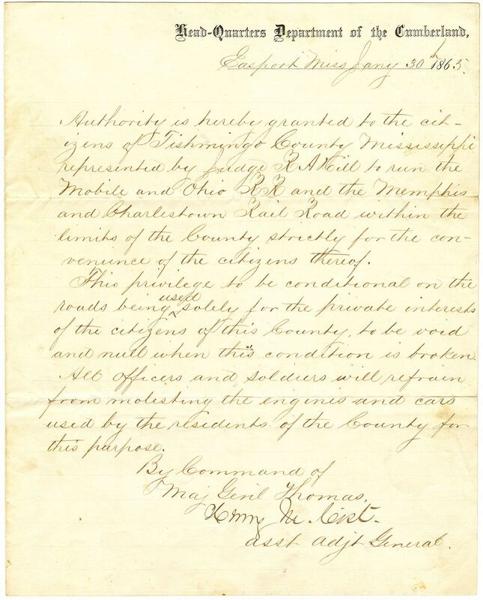 Head-Quarters Department of the Cumberland,
Eastport Miss Jany 30th 1865.
Authority is hereby granted to the cit-
izens of Tishmingo County Mississippi
represented by Judge R A Hill to run the
Mobile and Ohio RR and the Memphis
and Charlestown Rail Road within the
limits of the County strictly for the con-
venience of the citizens thereof.
This privilege to be conditional on the
roads being used solely for the private interests
of the citizens of this County, to be void
and null when this condition is broken
All Officers and Soldiers will refrain
from molesting the engines and cars
used by the residents of the County for
this purpose.
By Command of
Maj Genl Thomas,
Henry M. Cist.
Asst Adjt General.